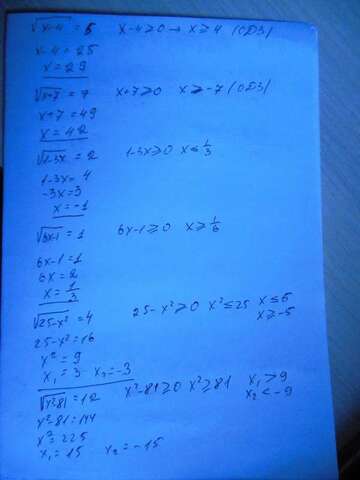 √x-4 = 5 x-4≥0 → x≥4 (ОДЗ)
x-4=25
x=29
√x+7 = 7 x+7≥0 x≥-7 (ОДЗ)
x+7=49
x=42
√1-3x = 2 1-3x≥0 x≤1/3
1-3x=4
-3x=3
x=-1
√6x-1 = 1 6x-1≥0 x≥1/6
6x-1=1
6x=2
x=1/3
√25-x² = 4 25-x²≥0 x²≤25 x≤5
x≥-5
25-x²=16
x²=9
x₁=3 x₂=-3
√x²-81 = 12 x²-81≥0 x²≥81 x₁>9
x₂<-9
x²-81=144
x²=225
x₁=15 x₂=-15